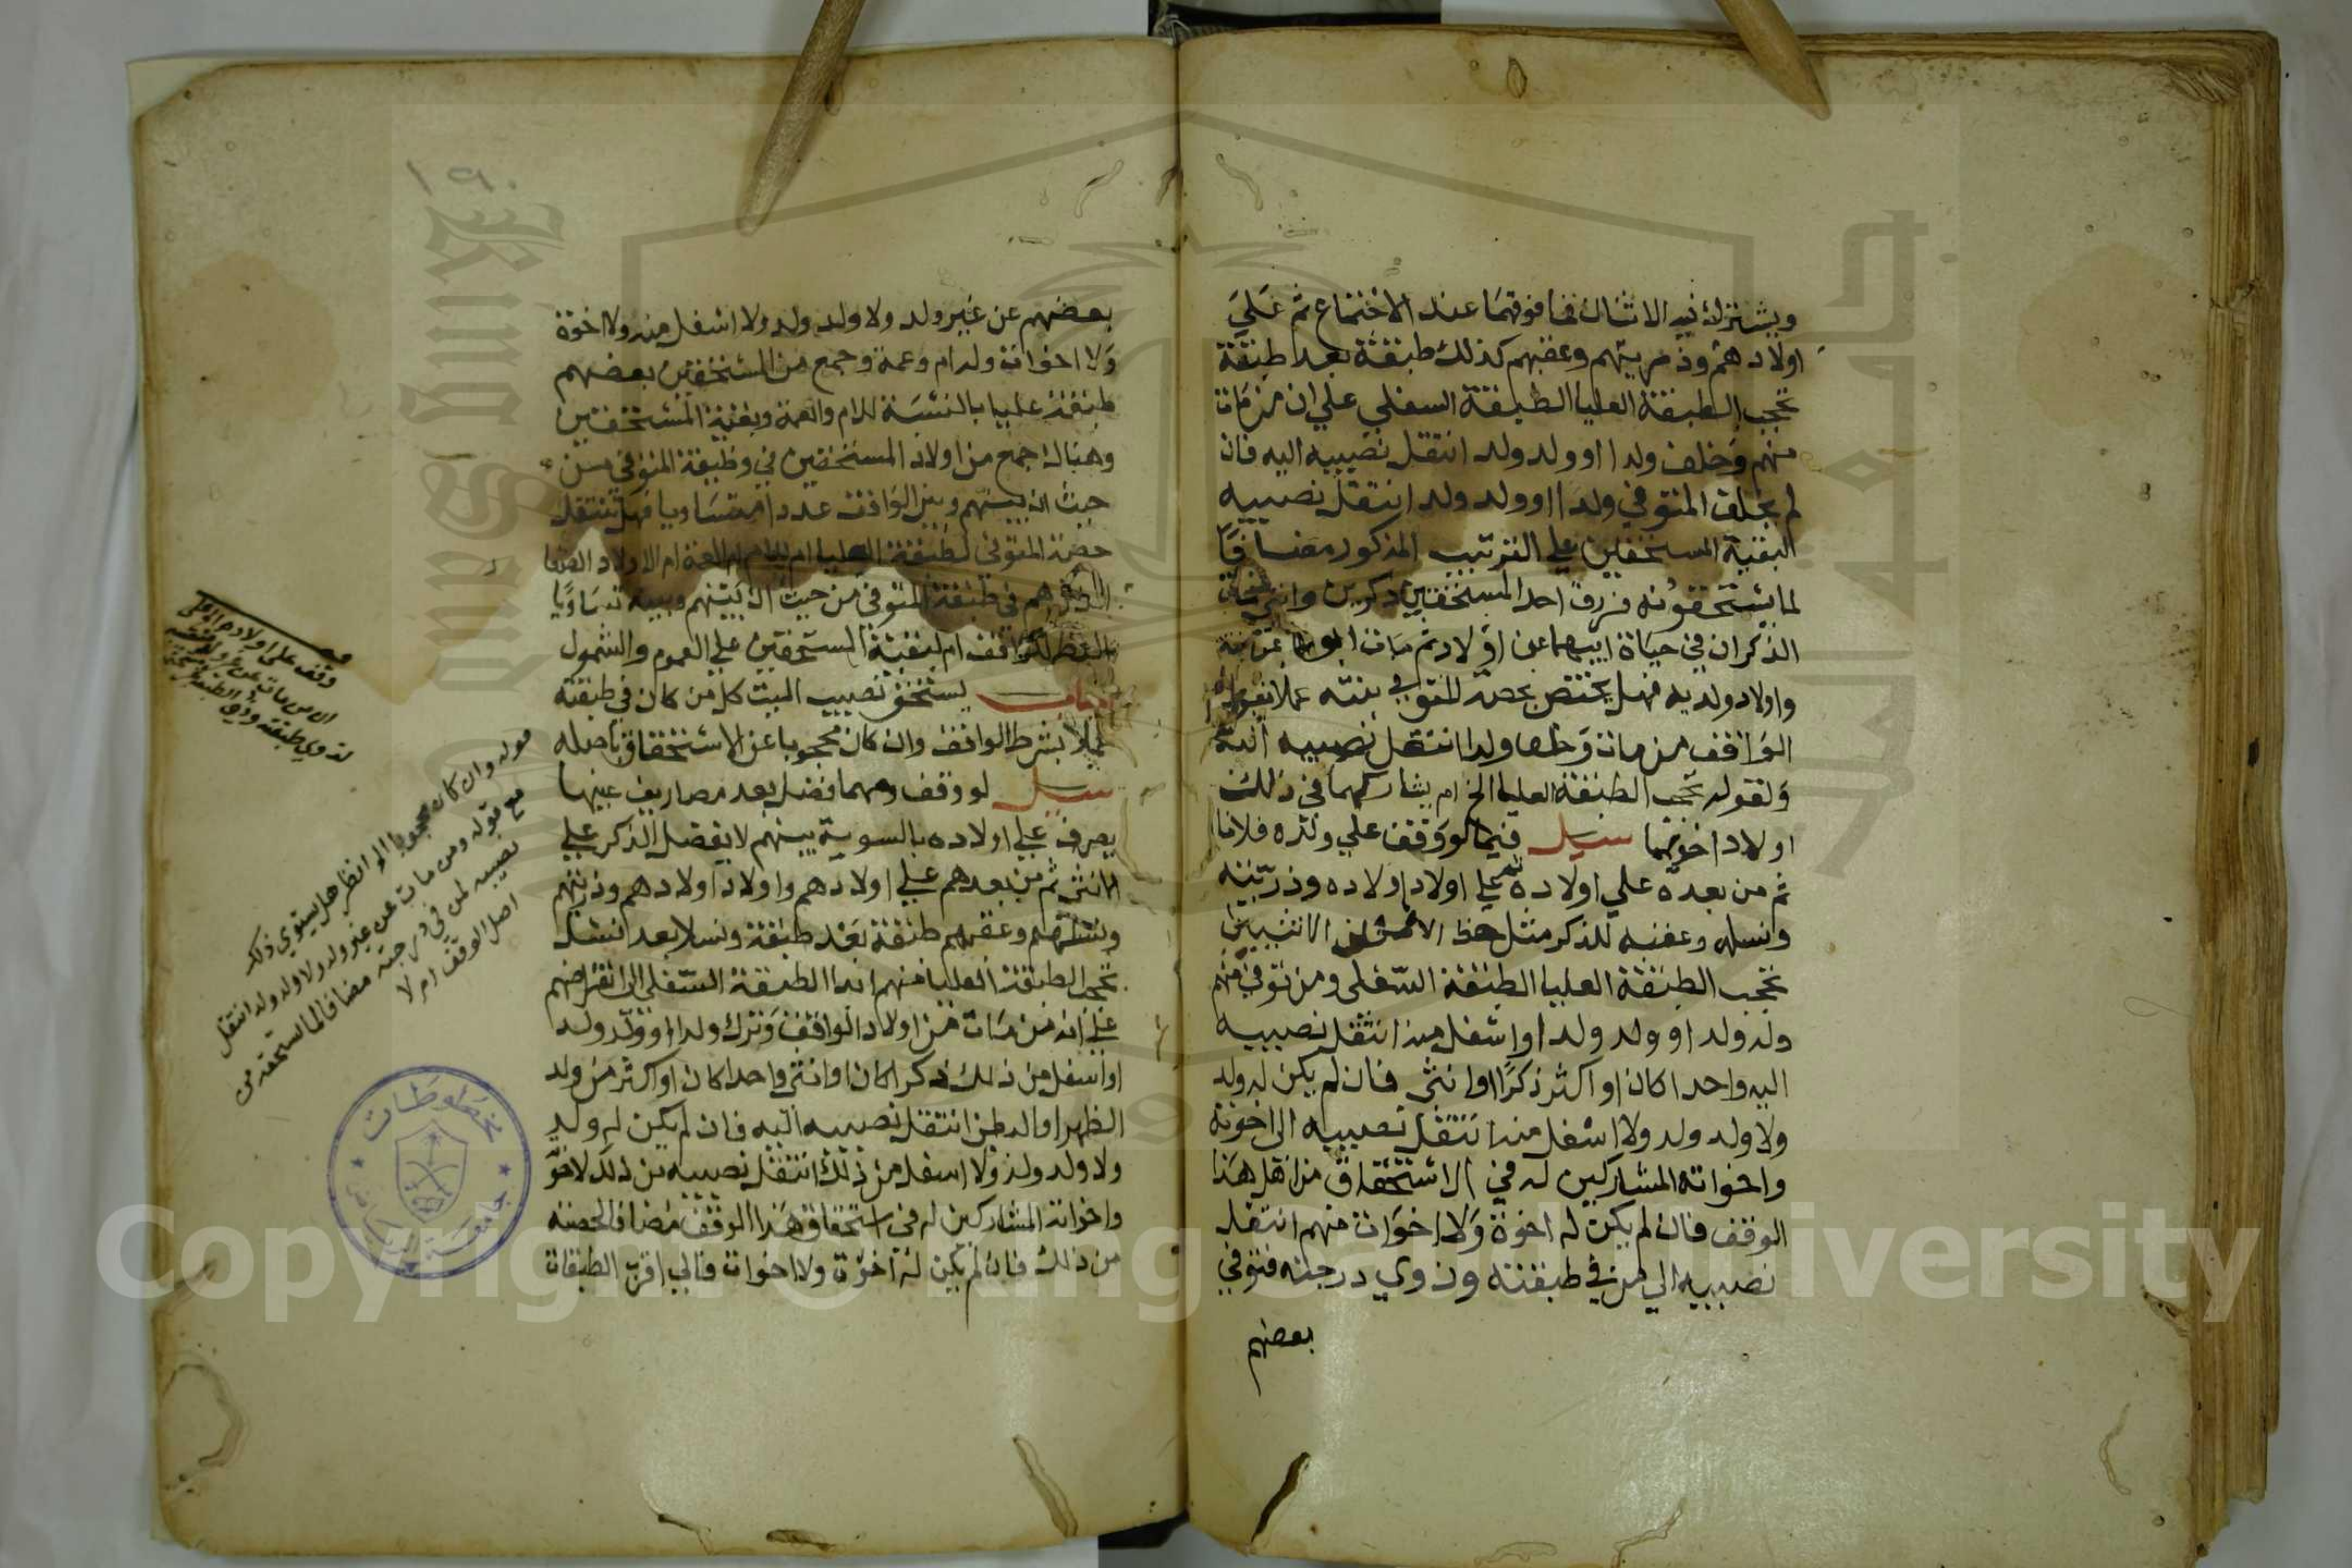 ويشترك فيه الاثنان فما فوقهما عند الاجتماع ثم علي
اولادهم وذريتهم وعقبهم كذلك طبقة بعد طبقة
تحجب الطبقة العليا الطبقة السفلي علي ان من مات
منهم وخلف ولدا او ولد ولد انتقل نصيبه اليه فان
لم يخلف المتوفي ولدا او ولد ولد انتقل نصيبه
لبقية المستحقين علي الترتيب المذكور مضافا
لما يستحقونه فرزق احد المستحقين ذكرين وانثي
الذكران في حياة ابيهما عن اولاد ثم مات ابوهما عن بنته
واولاد ولديه فهل يختص بحصة المتوفي بنته عملا بقول
الواقف من مات وخلف ولدا انتقل نصيبه اليه
ولقوله تحجب الطبقة العليا الخ ام يشاركها في ذلك
اولاد اخويها سيل فيما لو وقف علي ولده فلانا
ثم من بعده علي اولاده ثم علي اولاد اولاده وذريته
ونسله وعقبه للذكر مثل حظ الانثيين
تحجب الطبقة العليا الطبقة السفلي ومن توفي منهم
وله ولد او ولد ولد او اسفل منه انتقل نصيبه
اليه واحدا كان او اكثر ذكرا او انثي فان لم يكن له ولد
ولا ولد ولد ولا اسفل منه انتقل نصيبه الي اخوته
واخواته المشاركين له في الاستحقاق من اهل هذا
الوقف فان لم يكن له اخوة ولا اخوات منهم انتقل
نصيبه الي من في طبقته وذوي درجته فتوفي
بعضهم
١٩٠
بعضهم عن غير ولد ولا ولد ولد ولا اسفل منه ولا اخوة
ولا اخوات وله ام وعمة وجمع من المستحقين بعضهم
طبقة عليا بالنسبة للام والعمة وبقية المستحقين
وهناك جمع من اولاد المستحقين في وظيفة المتوفي من
حيث ان بينهم وبين الواقف عددا متساويا فهل تنتقل
حصة المتوفي لطبقة العليا ام للام ام للعمة ام الاولاد
الذين هم في طبقة المتوفي من حيث ان بينهم وبينه تساويا
بالنظر للواقف ام لبقية المستحقين علي العموم والشمول
اجاب يستحق نصيب الميت كل من كان في طبقته
عملا بشرط الواقف وان كان محجوبا عن الاستحقاق باصله
سيل لو وقف ومهما فضل بعد مصاريف عينها
يصرف علي اولاده بالسوية بينهم لا يفضل الذكر علي
الانثي ثم من بعدهم علي اولادهم واولاد اولادهم وذريتهم
ونسلهم وعقبهم طبقة بعد طبقة ونسلا بعد نسل
تحجب الطبقة العليا منهم ابدا الطبقة السفلي الي انقراضهم
علي انه من مات من اولاد الواقف وترك ولدا او ولد ولد
او اسفل من ذلك ذكرا كان او انثي واحدا كان او اكثر من ولد
الظهر او البطن انتقل نصيبه اليه فان لم يكن له ولد
ولا ولد ولد ولا اسفل من ذلك انتقل نصيبه من ذلك لاخوته
واخواته المشاركين له في استحقاق هذا الوقف مضافا لحصته
من ذلك فان لم يكن له اخوة ولا اخوات فالي اقرب الطبقات
وقف علي اولاده
ان من مات عن غير ولد
لذوي طبقته وذوي
قوله وان كان محجوبا الخ انظر هل يستوي ذلك
مع قوله ومن مات عن غير ولد ولا ولد ولد انتقل
نصيبه لمن في درجته مضافا لما يستحقه من
اصل الوقف ام لا
مخطوطات
جامعة الرياض
Copyright © King Saud University